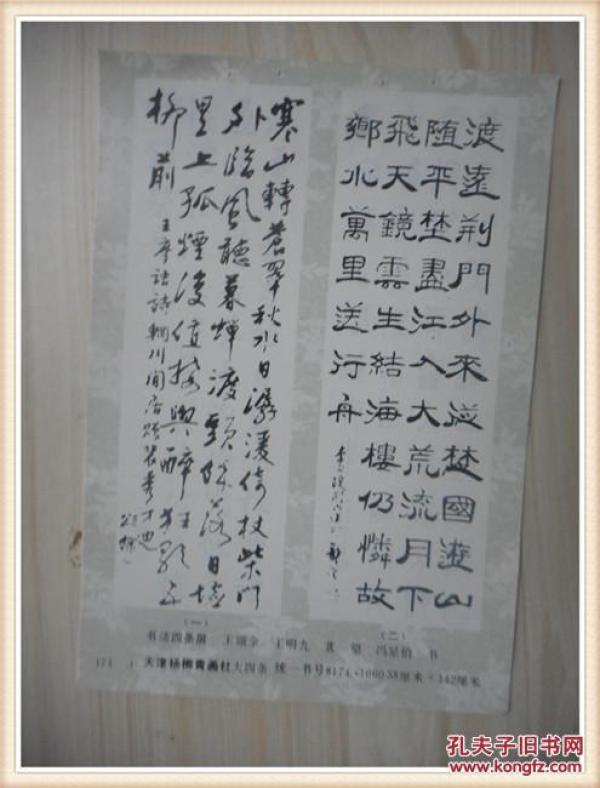 寒山轉蒼翠秋水日潺湲倚杖柴門
外臨風聽暮蟬渡頭餘落日墟
里上孤煙復值接輿醉狂歌五
柳前 王摩詰詩輞川閒居贈裴秀才迪
頌餘
渡遠荆門外來從楚國遊山
随平埜盡江入大荒流月下
飛天鏡雲生結海樓仍憐故
鄉水萬里送行舟
(一)
(二)
书法四条屏 王颂余 王明九 龚望 冯星伯 书
174 天津杨柳青画社 大四条 统一书号8174·1060 38厘米×142厘米
孔夫子旧书网
www.kongfz.com